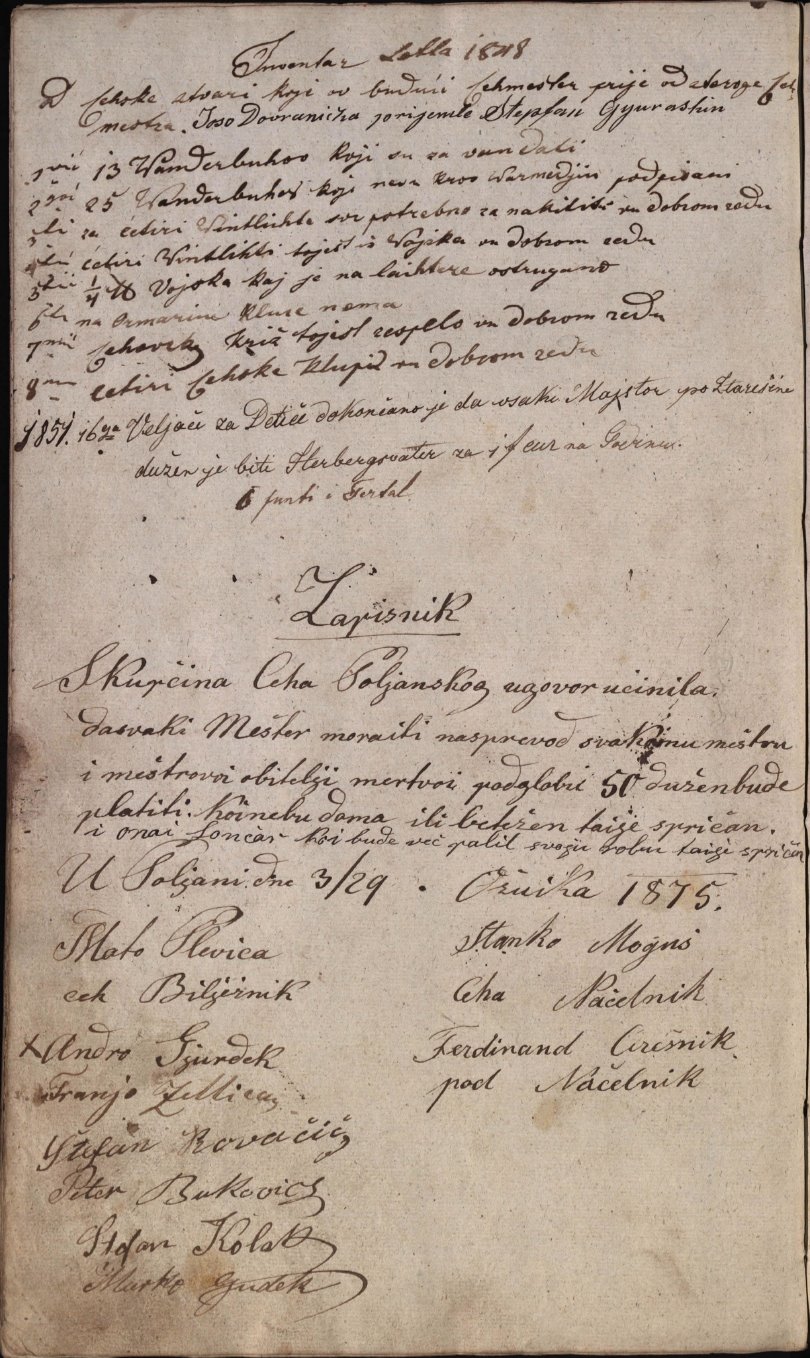 Inventar Letta 1848
Cehske stvari koji ov budući Cehmešter prije od staroga Ceh-
mestra. Joso Dovranićka porijemle Stepfan Gyurashin
1vić 13 Wanderbuhov koji su za van dati
25 Wanderbuhov koji nesu kroz Warmedjiu podpisani
3ti za ćetiri Wintlichte sve potrebno za nakititi vu dobrom redu
4tić ćetiri Wintlihti tojest iz Vojska vu dobrom redu
5tić 1/4 ℔ Vojska kaj je na laihtere ostrugano
6ti na Ormarinu Kluce nema
7mić Cehovsky Križ tojest respelo vu dobrom redu
8mi cetiri Cehske Klupih vu dobrom redu
1851. 16ga Veljače za Detiće dokončano je da vsaki Majstor po Ztarešine
dužen je biti Herbergsvater za 1 f cur na Godinu.
6 funti i Fertal
Zapisnik
Skupčina Ceha Poljanskog ugovor učinila.
dasvaki Mešter moraiti nasprevod svakomu meštru
i meštrovoi obitelji mertvoi podglobu 50 duženbude
platiti. Koinebu doma ili betežen taije spričan.
i onai Lončar koi bude već palil svoju robu taije spričan
U Poljani dne 3/29 . Ožuika 1875.
Mato Plevica Stanko Moguš
ceh Bilježnik Ceha Načelnik
x Andro Gjurdek Ferdinand Cirešnik.
Franjo Zellica pod Načelnik
Štefan Kovačić
Peter Bukovics
Stefan Kolak
Marko Gjudek